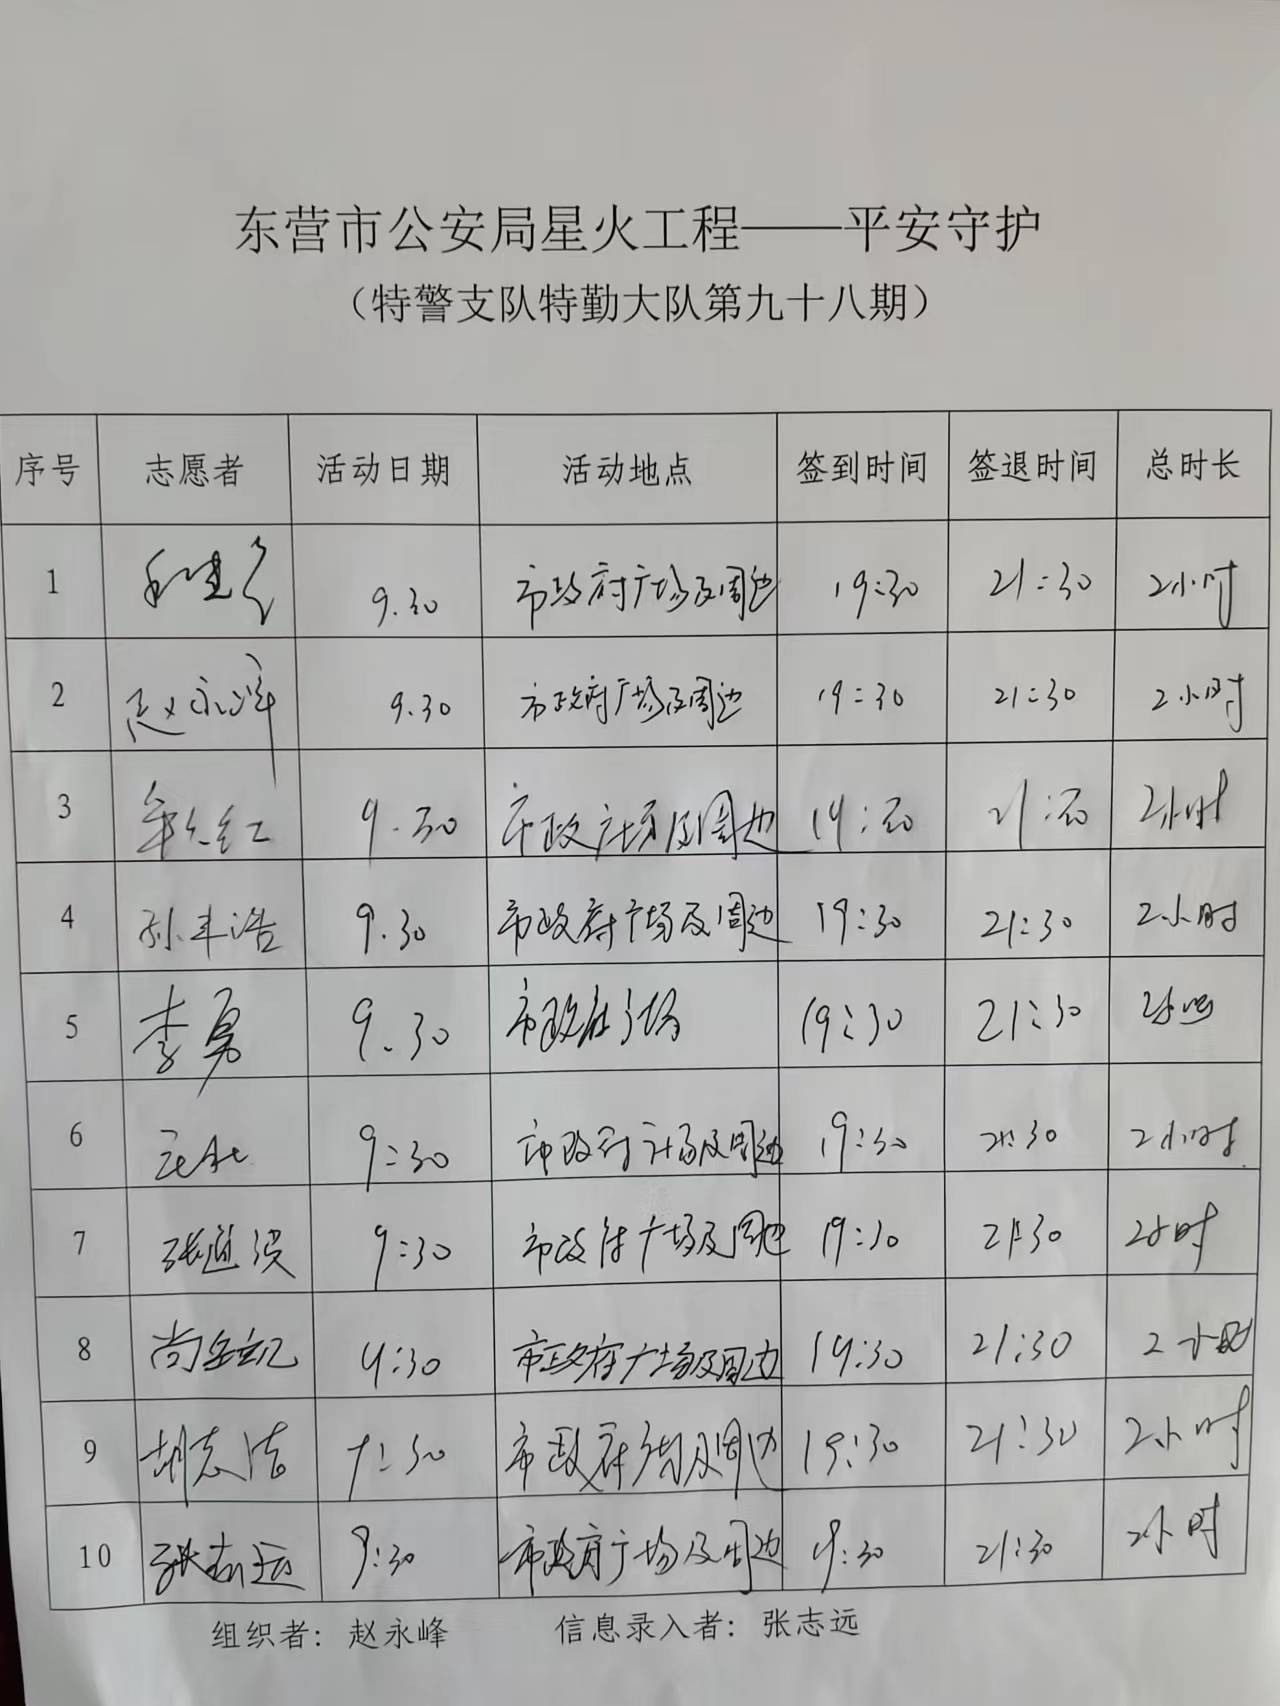 东营市公安局星火工程——平安守护
（特警支队特勤大队第九十八期）
序号 志愿者 活动日期 活动地点 签到时间 签退时间 总时长
1 9.30 市政府广场及周边 19:30 21:30 2小时
2 赵永峰 9.30 市政府广场及周边 19:30 21:30 2小时
3 9.30 市政广场及周边 19:30 21:30 2小时
4 孙丰浩 9.30 市政府广场及周边 19:30 21:30 2小时
5 李勇 9.30 市政府广场 19:30 21:30 2小时
6 9:30 市政府广场及周边 19:30 21:30 2小时
7 9:30 市政府广场及周边 19:30 21:30 2小时
8 9:30 市政府广场及周边 19:30 21:30 2小时
9 胡志浩 9:30 市政府广场及周边 19:30 21:30 2小时
10 张志远 9:30 市政府广场及周边 19:30 21:30 2小时
组织者：赵永峰 信息录入者：张志远